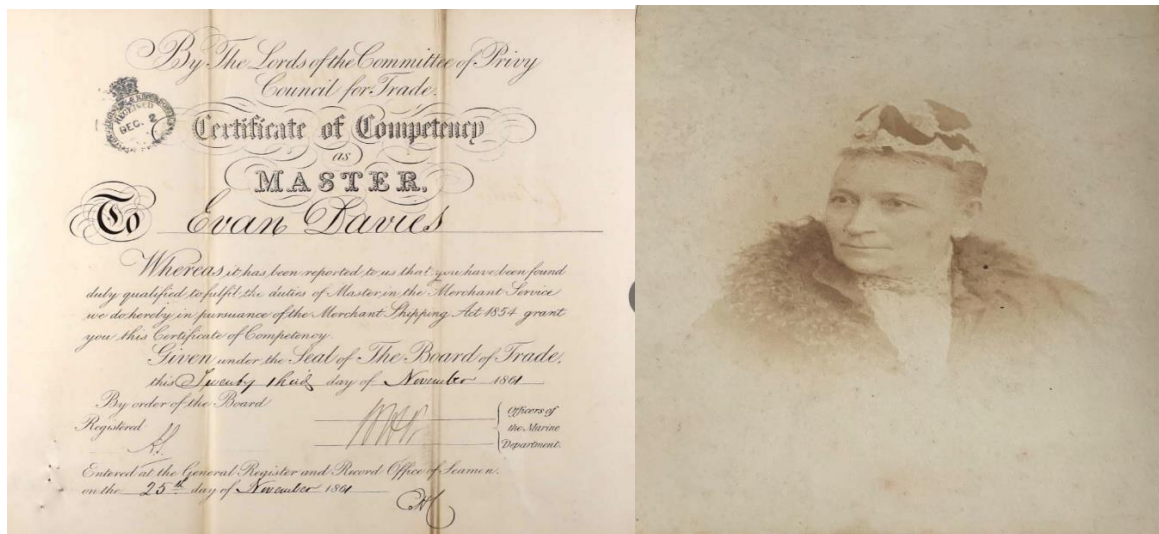 By The Lords of the Committee of Privy
Council for Trade.
RECEIVED
DEC. 2
Certificate of Competency
as
MASTER.
To Evan Davies
Whereas it has been reported to us that you have been found
duly qualified to fulfil the duties of Master in the Merchant Service
we do hereby in pursuance of the Merchant Shipping Act 1854 grant
you this Certificate of Competency.
Given under the Seal of The Board of Trade.
this Twenty third day of November 1861
By order of the Board
Registered
Officers of
the Marine
Department.
Entered at the General Register and Record Office of Seamen
on the 25th day of November 1861